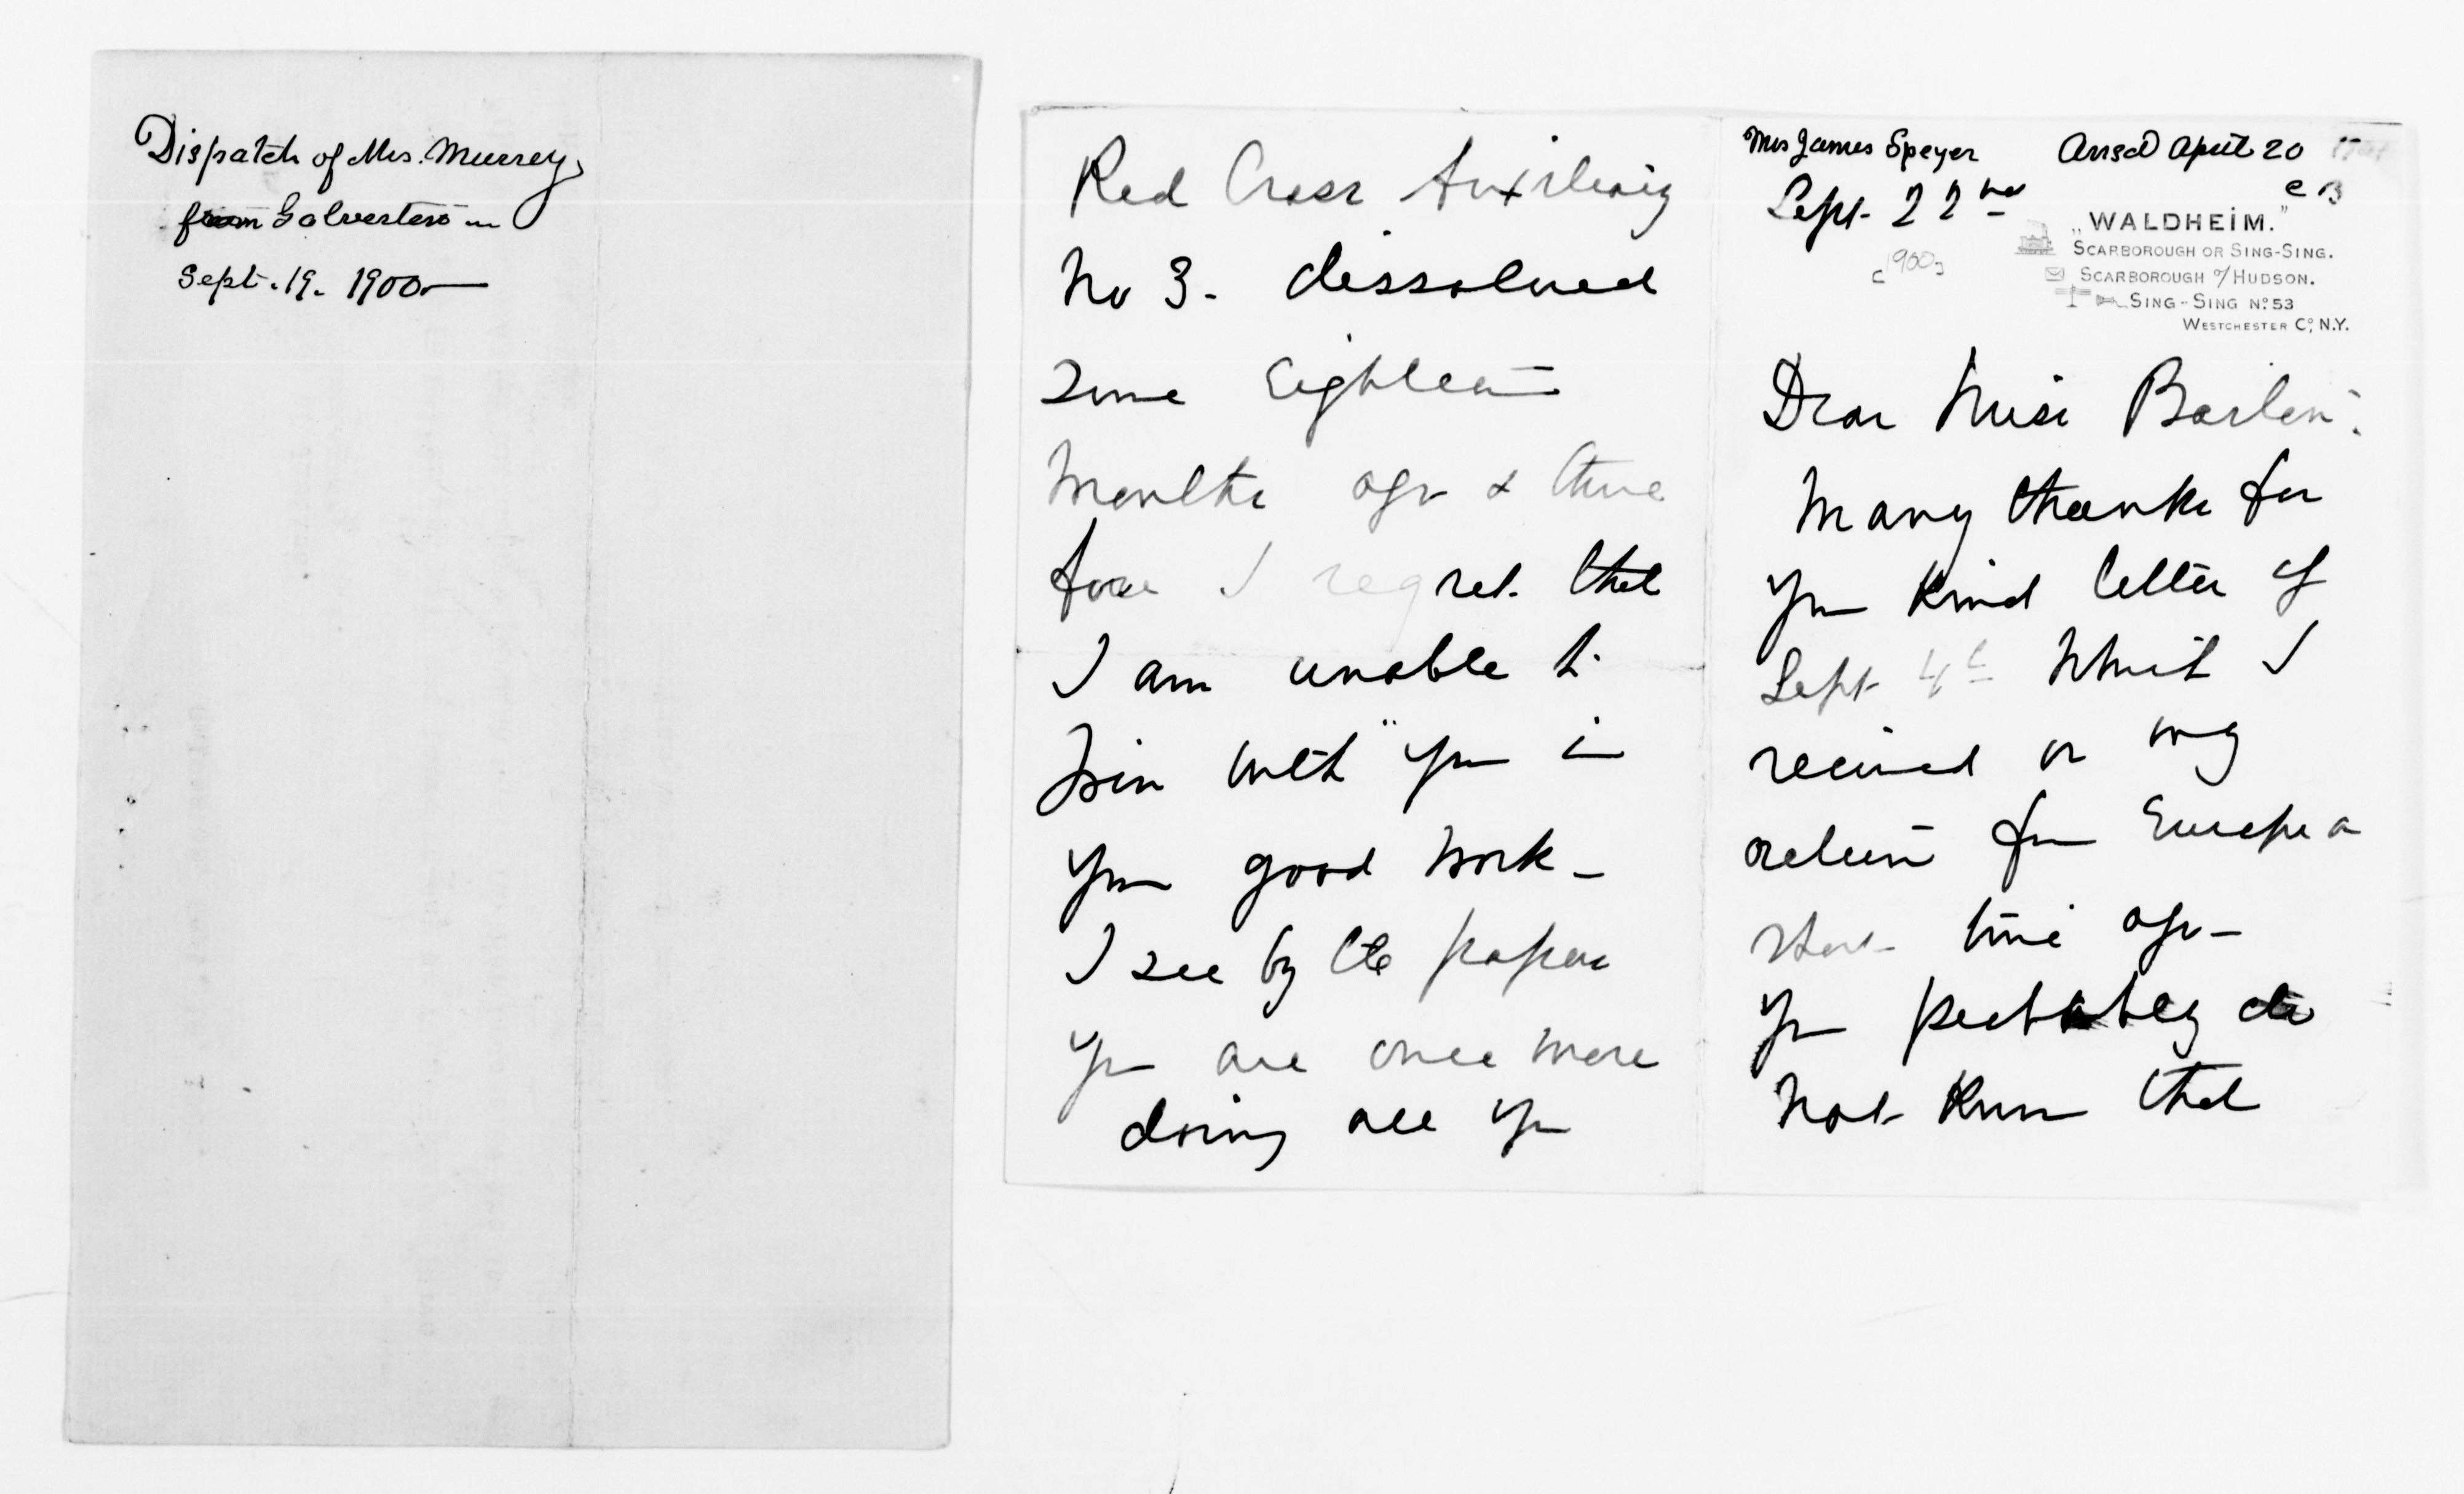 Dispatch of Mrs. Murrey,
from Galveston
Sept. 19. 1900
Mrs James Speyer Ansd April 20
C B
Sept 22nd
[1900]
„WALDHEIM."
SCARBOROUGH OR SING-SING.
SCARBOROUGH O/HUDSON.
SING-SING No. 53
WESTCHESTER Co, N.Y.
Dear Miss Barton:
Many thanks for
your kind letter of
Sept 4th which I
received on my
return from Europe a
short time ago -
You probably do
not know that
Red Cross Auxiliary
No 3. dissolved
some eighteen
months ago & there
fore I regret that
I am unable to
join with you in
your good work -
I see by the papers
you are once more
doing all you